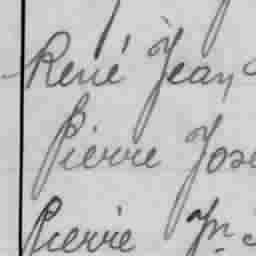 René Jean
Pierre
Pierre